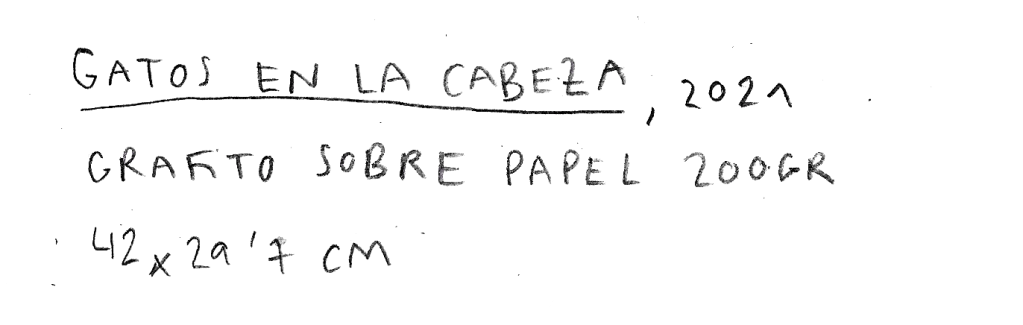 GATOS EN LA CABEZA, 2021
GRAFITO SOBRE PAPEL 200GR
42x29'7 CM